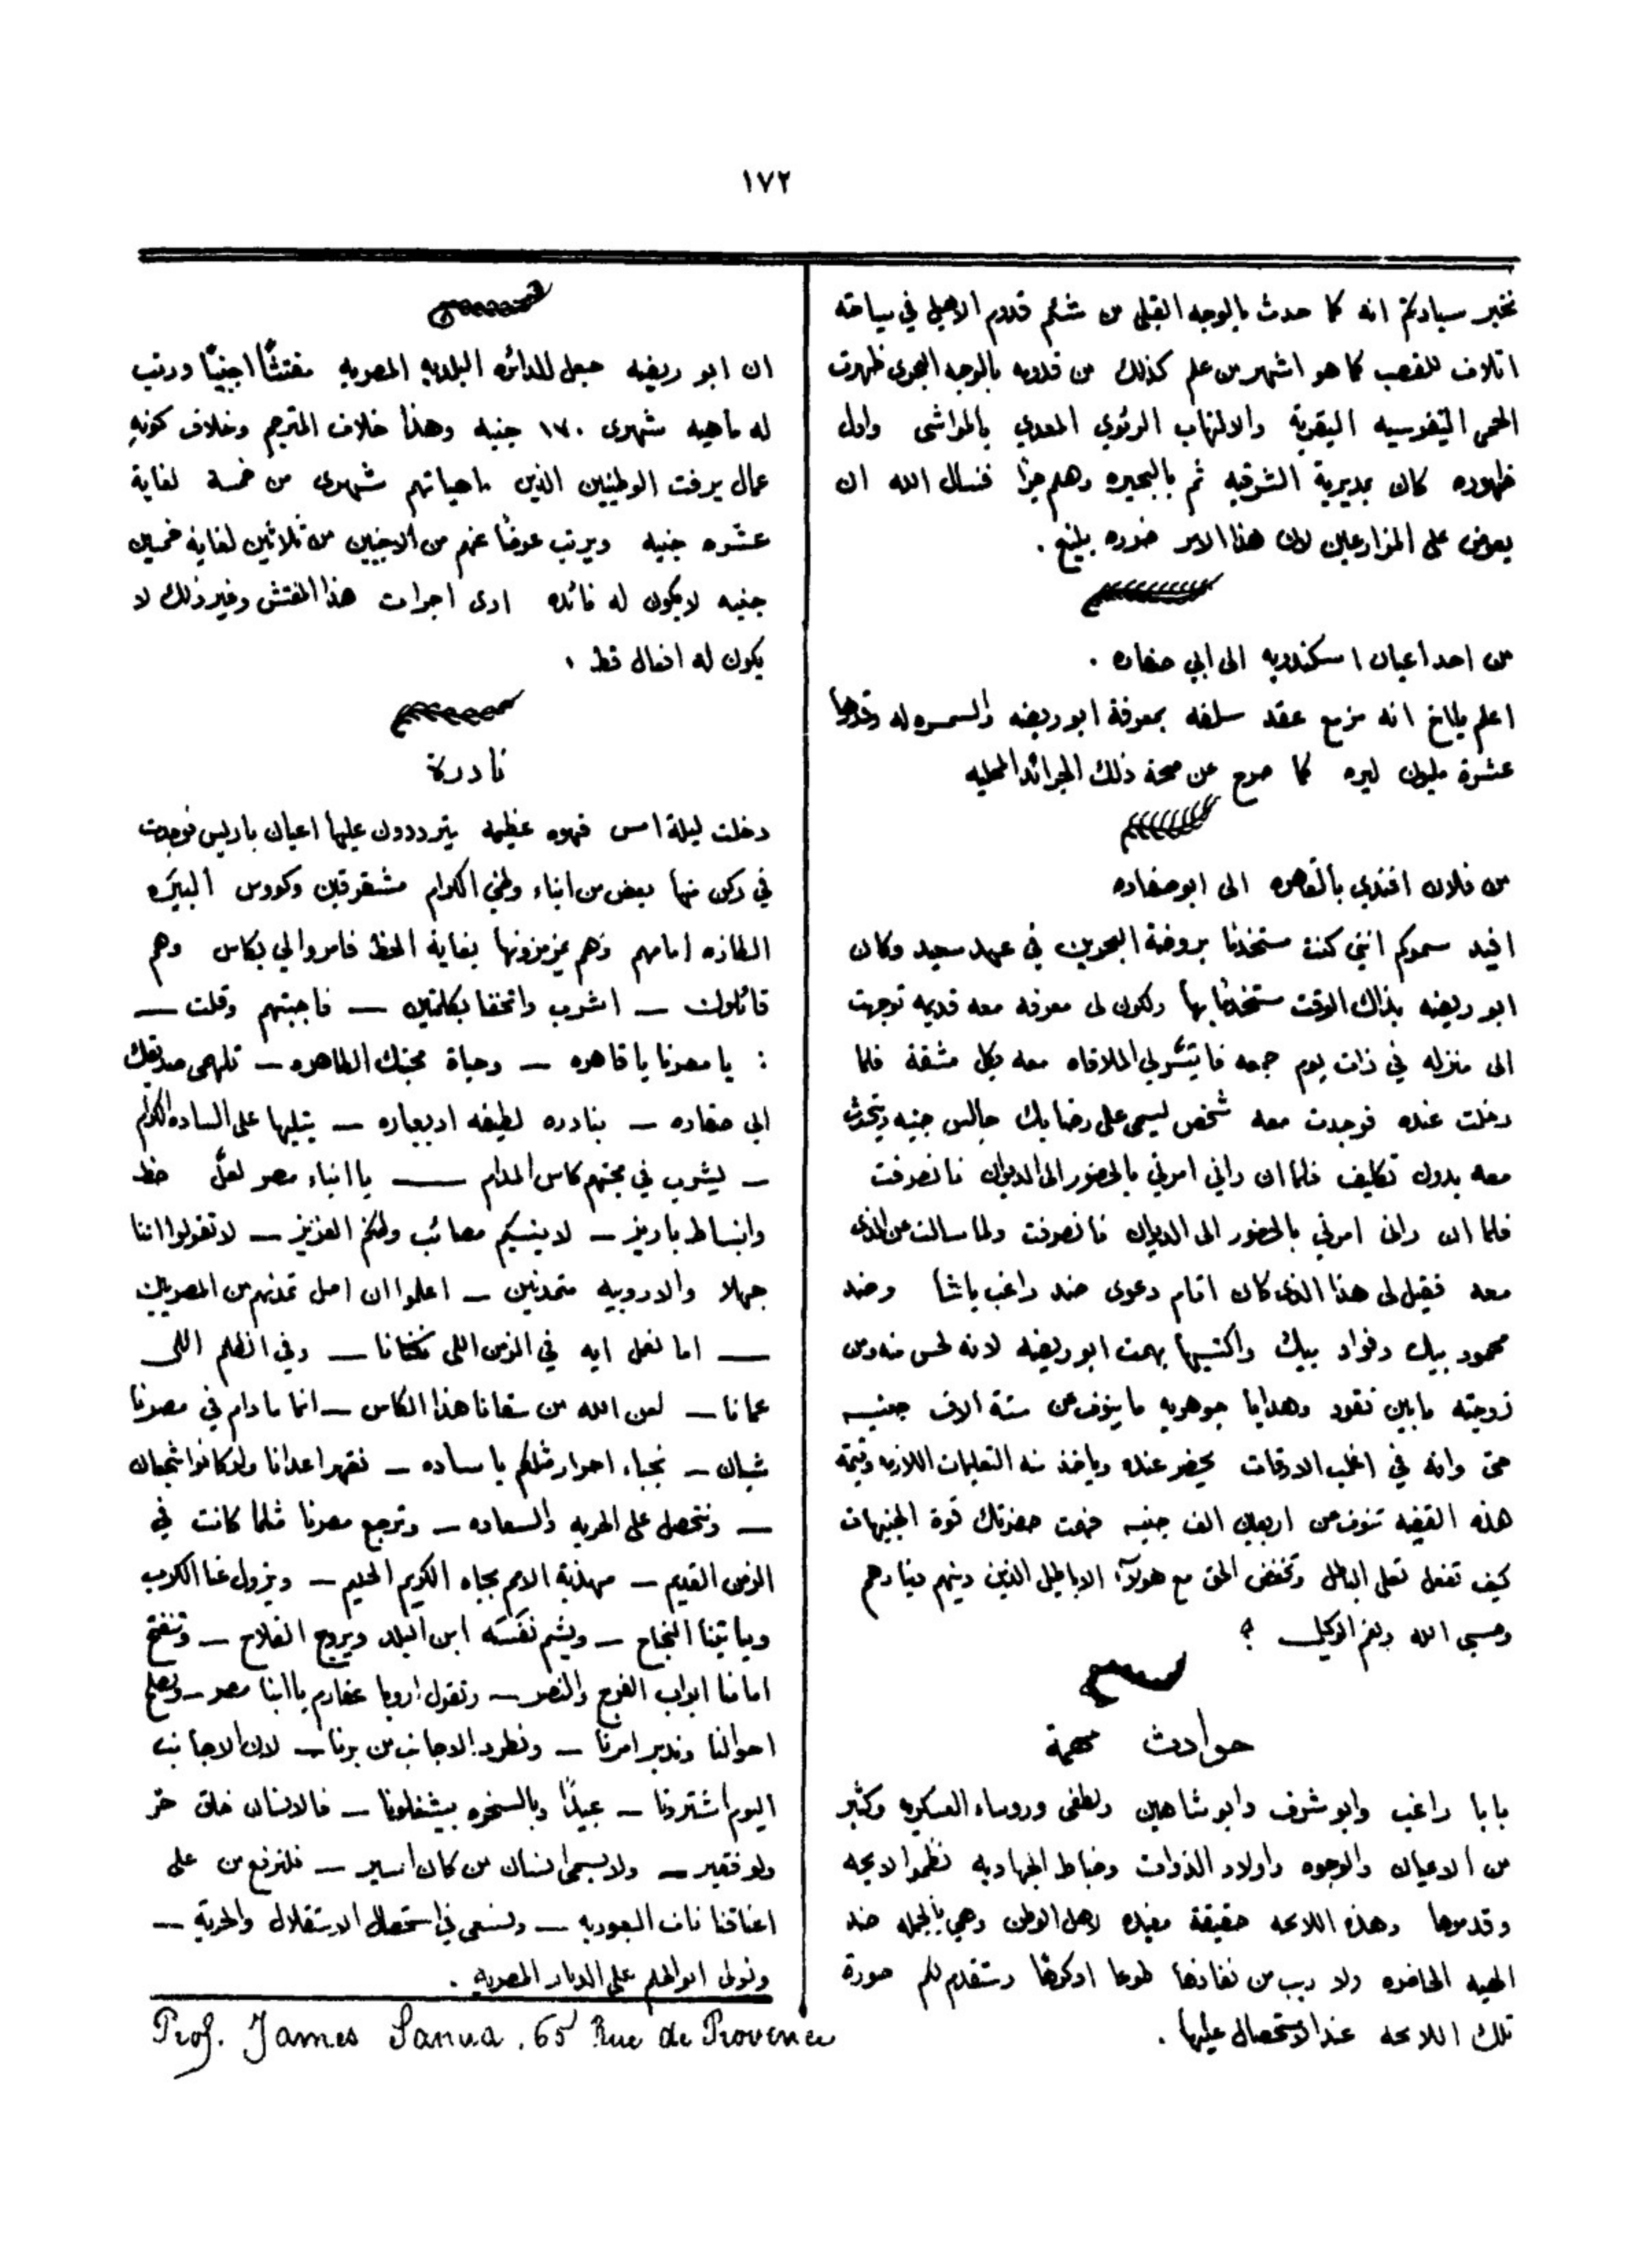 ١٧٢
نخبر سيادتكم انه كما حدث بالوجه القبلى من شئم قدوم الاهبل في سياحته
اتلاف للقصب كما هو اشهر من علم كذلك من قدومه بالوجه البحرى ظهرت
الحمى التيفوسيه البقرية والالتهاب الرئوي المعدي بالمواشى واول
ظهوره كان بمديرية الشرقيه ثم بالبحيره وهلم جرا فنسال الله ان
يعوض على المزارعين لان هذا الامر ضرره بليغ .
من احد اعيان اسكندريه الى ابي صفاره .
اعلم يا اخ انه مزمع عقد سلفه بمعرفة ابو ريضه والسمسره له وقدرها
عشرة مليون ليره كما صرح عن صحة ذلك الجرائد المحليه
من فلان افندي بالقاهره الى ابو صفاره
افيد سموكم انني كنت مستخدما بروضة البحرين في عهد سعيد وكان
ابو ريضه بذاك الوقت مستخدما بها ولكون لى معرفه معه قديمه توجهت
الى منزله في ذات يوم جمعه فما تيسر لي الملاقاه معه بكل مشقة فلما
دخلت عنده فوجدت معه شخص يسمى على رضا بك جالس جنبه ويتحدث
معه بدون تكليف فلما ان راني امرني بالحضور الى الديوان فانصرفت
فلما ان رانى امرني بالحضور الى الديوان فانصرفت ولما سالت عن الذى
معه فقيل لى هذا الذى كان اقام دعوى ضد راغب باشا وضد
محمود بيك وفواد بيك واكتسبها بهمت ابو ريضه لانه لحس منه ومن
زوجته ما بين نقود وهدايا جوهريه ما ينوف عن ستة الاف جنيه
حتى وانه في اغلب الاوقات يحضر عنده وياخذ منه التعليمات اللازمه وقيمة
هذه القضيه تنوف عن اربعين الف جنيه فهمت حضرتك قوة الجنيهات
كيف تفعل تعلى الباطل وتخفض الحق مع هولآء الاباطيل الذين دينهم دينارهم
وحسبي الله ونعم الوكيل ؟
حوادث مهمة
بابا راغب وابو شرف وابو شاهين ولطفى وروساء العسكريه وكثير
من الاعيان والوجوه واولاد الذوات وضباط الجهاديه نظموا لايحه
وقدموها وهذه اللايحه حقيقة مفيده لاهل الوطن وهي بالجمله ضد
الهيه الحاضره ولا ريب من نفاذها طوعا اوكرها وستقدم لكم صورة
تلك اللايحه عند الاستحصال عليها .
ان ابو ريضه جعل للدائره البلديه المصريه مفتشًا اجنبيًا ورتب
له ماهيه شهرى ١٧٠ جنيه وهذا خلاف المترجم وخلاف كونه
عمال يرفت الوطنيين الذين ماهياتهم شهرى من خمسة لغاية
عشره جنيه ويرتب عوضًا عنهم من الاجنبيين من ثلاثين لغاية خمسين
جنيه لا يكون له فائده ادى اجرات هذا المفتش وغير ذلك لا
يكون له افعال قط .
نادرة
دخلت ليلة امس قهوه عظيمه يترددون عليها اعيان باريس فوجدت
في ركن منها بعض من ابناء وطني الكرام مشقرقين وكووس البيره
الطازه امامهم وهم يمزمزونها بغاية الحظ فامروا لي بكاس وهم
قائلون ــ اشرب واتحفنا بكلمتين ــ فاجبتهم وقلت ــ
: يا مصرنا يا قاهره ــ وحياة محبتك الطاهره ــ تلهمى صديقك
ابي صفاره ــ بنادره لطيفه ادبعباره ــ يتليها على الساده الكرام
ــ ليشرب في محبتهم كاس المدام ــ يا ابناء مصر لعل حظ
وانبساط باريز ــ لا ينسيكم مصائب وطنكم العزيز ــ لا تقولوا اننا
جهلا والاروبيه متمدنين ــ اعلموا ان اصل تمدنهم من المصريين
ــ اما نعمل ايه في الزمن اللى ــ وفى الظلم اللى
عمانا ــ لعن الله من سقانا هذا الكاس ــ انما مادام في مصرنا
شبان ــ نجباء احرار مثلكم يا ساده ــ نقهر اعدانا ولو كانوا شجعان
ــ ونتحصل على الحريه والسعاده ــ وترجع مصرنا مثلما كانت في
الزمن القديم ــ مهذبة الامم بجاه الكريم الحليم ــ ويزول عنا الكرب
وياتينا النجاح ــ ويشم نفسه ابن البلد ويروج الفلاح ــ وتنفتح
امامنا ابواب الفرج والنصر ــ وتقول اروبا عفارم يا ابنا مصر ــ ونصلح
احوالنا وندبر امرنا ــ ونطرد الاجانب من برنا ــ لان الاجانب
اليوم اشترونا ــ عبيدًا وبالسخره بيشغلونا ــ فالانسان خلق حر
ولو فقير ــ ولا يسمى انسان من كان اسير ــ فلنرفع من على
اعناقنا ناف العبوديه ــ ولنسعى في استحصال الاستقلال والحرية ــ
ونولى ابو الحلم على الديار المصريه .
Prof. James Sanua . 65 Rue de Provence